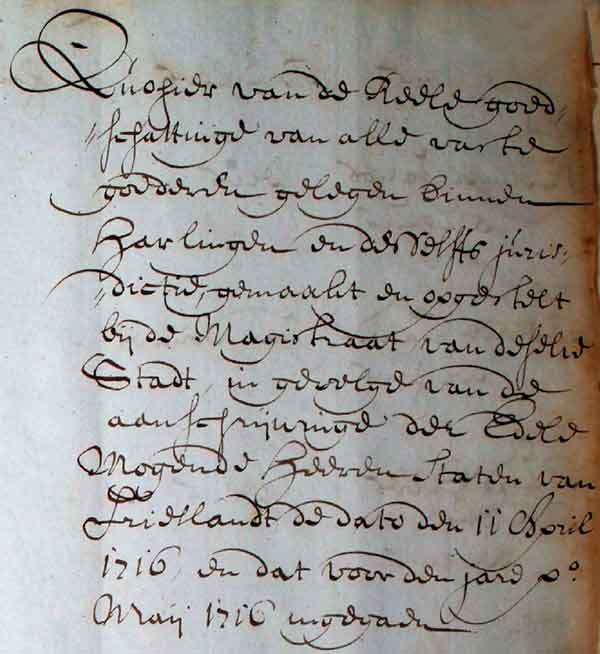 Quohier van de Reele goed=
=schattinge van alle vaste
goederen gelegen binnen
Harlingen en desselffs juris=
=dictie, gemaakt en opgestelt
bij de Magistraat van deselve
Stadt, in gevolge van de
aanschrijvinge der Edele
Mogende Heeren Staten van
Frieslandt de dato den 11 April
1716, en dat voor den jare po.
Maij 1716 ingegaen